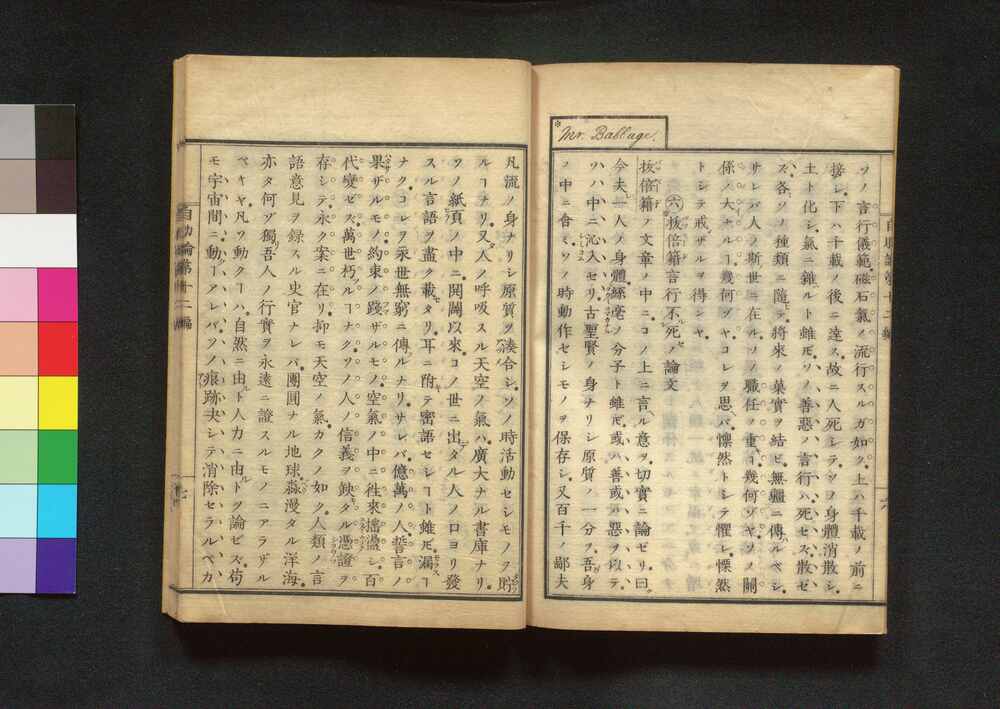 *Mr. Babbage.
ソノ言行儀範。磁石氣ノ流行スルガ如ク。上ハ千載ノ前ニ
接シ。下ハ千載ノ後ニ達ス。故ニ人死シテ。ソノ身體消散シ。
土ト化シ。氣ニ雜ルト雖𪜈。ソノ善惡ノ言行ハ死セズ。散ゼ
ズ。各ソノ種類ニ隨テ。將來ノ菓實ヲ結ビ。無疆ニ傳ルベシ。
サレバ人ノ斯世ニ在ル。ソノ職任ノ重キヿ幾何ゾヤ。ソノ關
係ノ大ナルヿ幾何ゾヤ。コレヲ思バ。懍然トシテ懼レ。慄然
トシテ戒ザルヲ得ンヤ。
六 拔倍籍言行不死ノ論文
拔倍籍ノ文章ノ中ニ。コノ上ニ言ル意ヲ。切實ニ論ゼリ。曰。
今夫一人ノ身體。絲毫ノ分子ト雖𪜈。或ハ善或ハ惡ヲ以テ。
ソノ中ニ沁入セリ。古聖賢ノ身ナリシ原質ノ一分ヲ。吾身
ノ中ニ含ミ。ソノ時動作セシモノヲ保存シ。又百千ノ鄙夫
凡流ノ身ナリシ原質ヲ湊合シ。ソノ時活動セシモノヲ貯
ルヿナリ。又人ノ呼吸スル天空ノ氣ハ。廣大ナル書庫ナリ。
ソノ紙頁ノ中ニ。開闢以來コノ世ニ出タル人ノ口ヨリ發
スル言語ヲ盡ク載タリ。耳ニ附テ密語セシヿト雖𪜈。漏ヿ
ナク。コレヲ永世無窮ニ傳ルナリ。サレバ億萬ノ人。誓言ノ
果ザルモノ。約束ノ踐ザルモノ。空氣ノ中ニ往來搖盪シ。百
代變ゼズ。萬世朽ルヿナク。ソノ人ノ信義ヲ缺タル憑證ヲ
存シテ。永ク案ニ在リ。抑モ天空ノ氣カクノ如ク。人類ノ言
語意見ヲ錄スル史官ナレバ。團圓ナル地球。淼漫タル洋海。
亦タ何ゾ獨リ吾人ノ行實ヲ永遠ニ證スルモノニアラザル
ベキヤ。凡ソ動クヿハ。自然ニ由ルト人力ニ由ルトヲ論ゼズ。苟
モ宇宙間ニ動ヿアレバ。ソノ痕跡決シテ消除セラルベカ
自助論第十二編